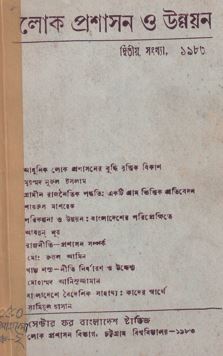 লোক প্রশাসন ও উন্নয়ন
দ্বিতীয় সংখ্যা, ১৯৮৩
আধুনিক লোক প্রশাসনের বুদ্ধি বৃত্তিক বিকাশ
মুহম্মদ নুরুল ইসলাম
গ্রামীন রাজনৈতিক পদ্ধতি: একটি গ্রাম ভিত্তিক প্রতিবেদন
পরিকল্পনা ও উন্নয়ন: বাংলাদেশের পরিপ্রেক্ষিতে
আবদুন নূর
রাজনীতি—প্রশাসন সম্পর্ক
মোঃ রুহুল আমিন
খাদ্য শস্য—নীতি নির্ধারণ ও উদ্দেশ্য
মোহাম্মদ আমিনুজ্জামান
বাংলাদেশে বৈদেশিক সাহায্য: কাদের স্বার্থে
সেন্টার ফর বাংলাদেশ স্টাডিজ
লোক প্রশাসন বিভাগ, চট্টগ্রাম বিশ্ববিদ্যালয়—১৯৮৩